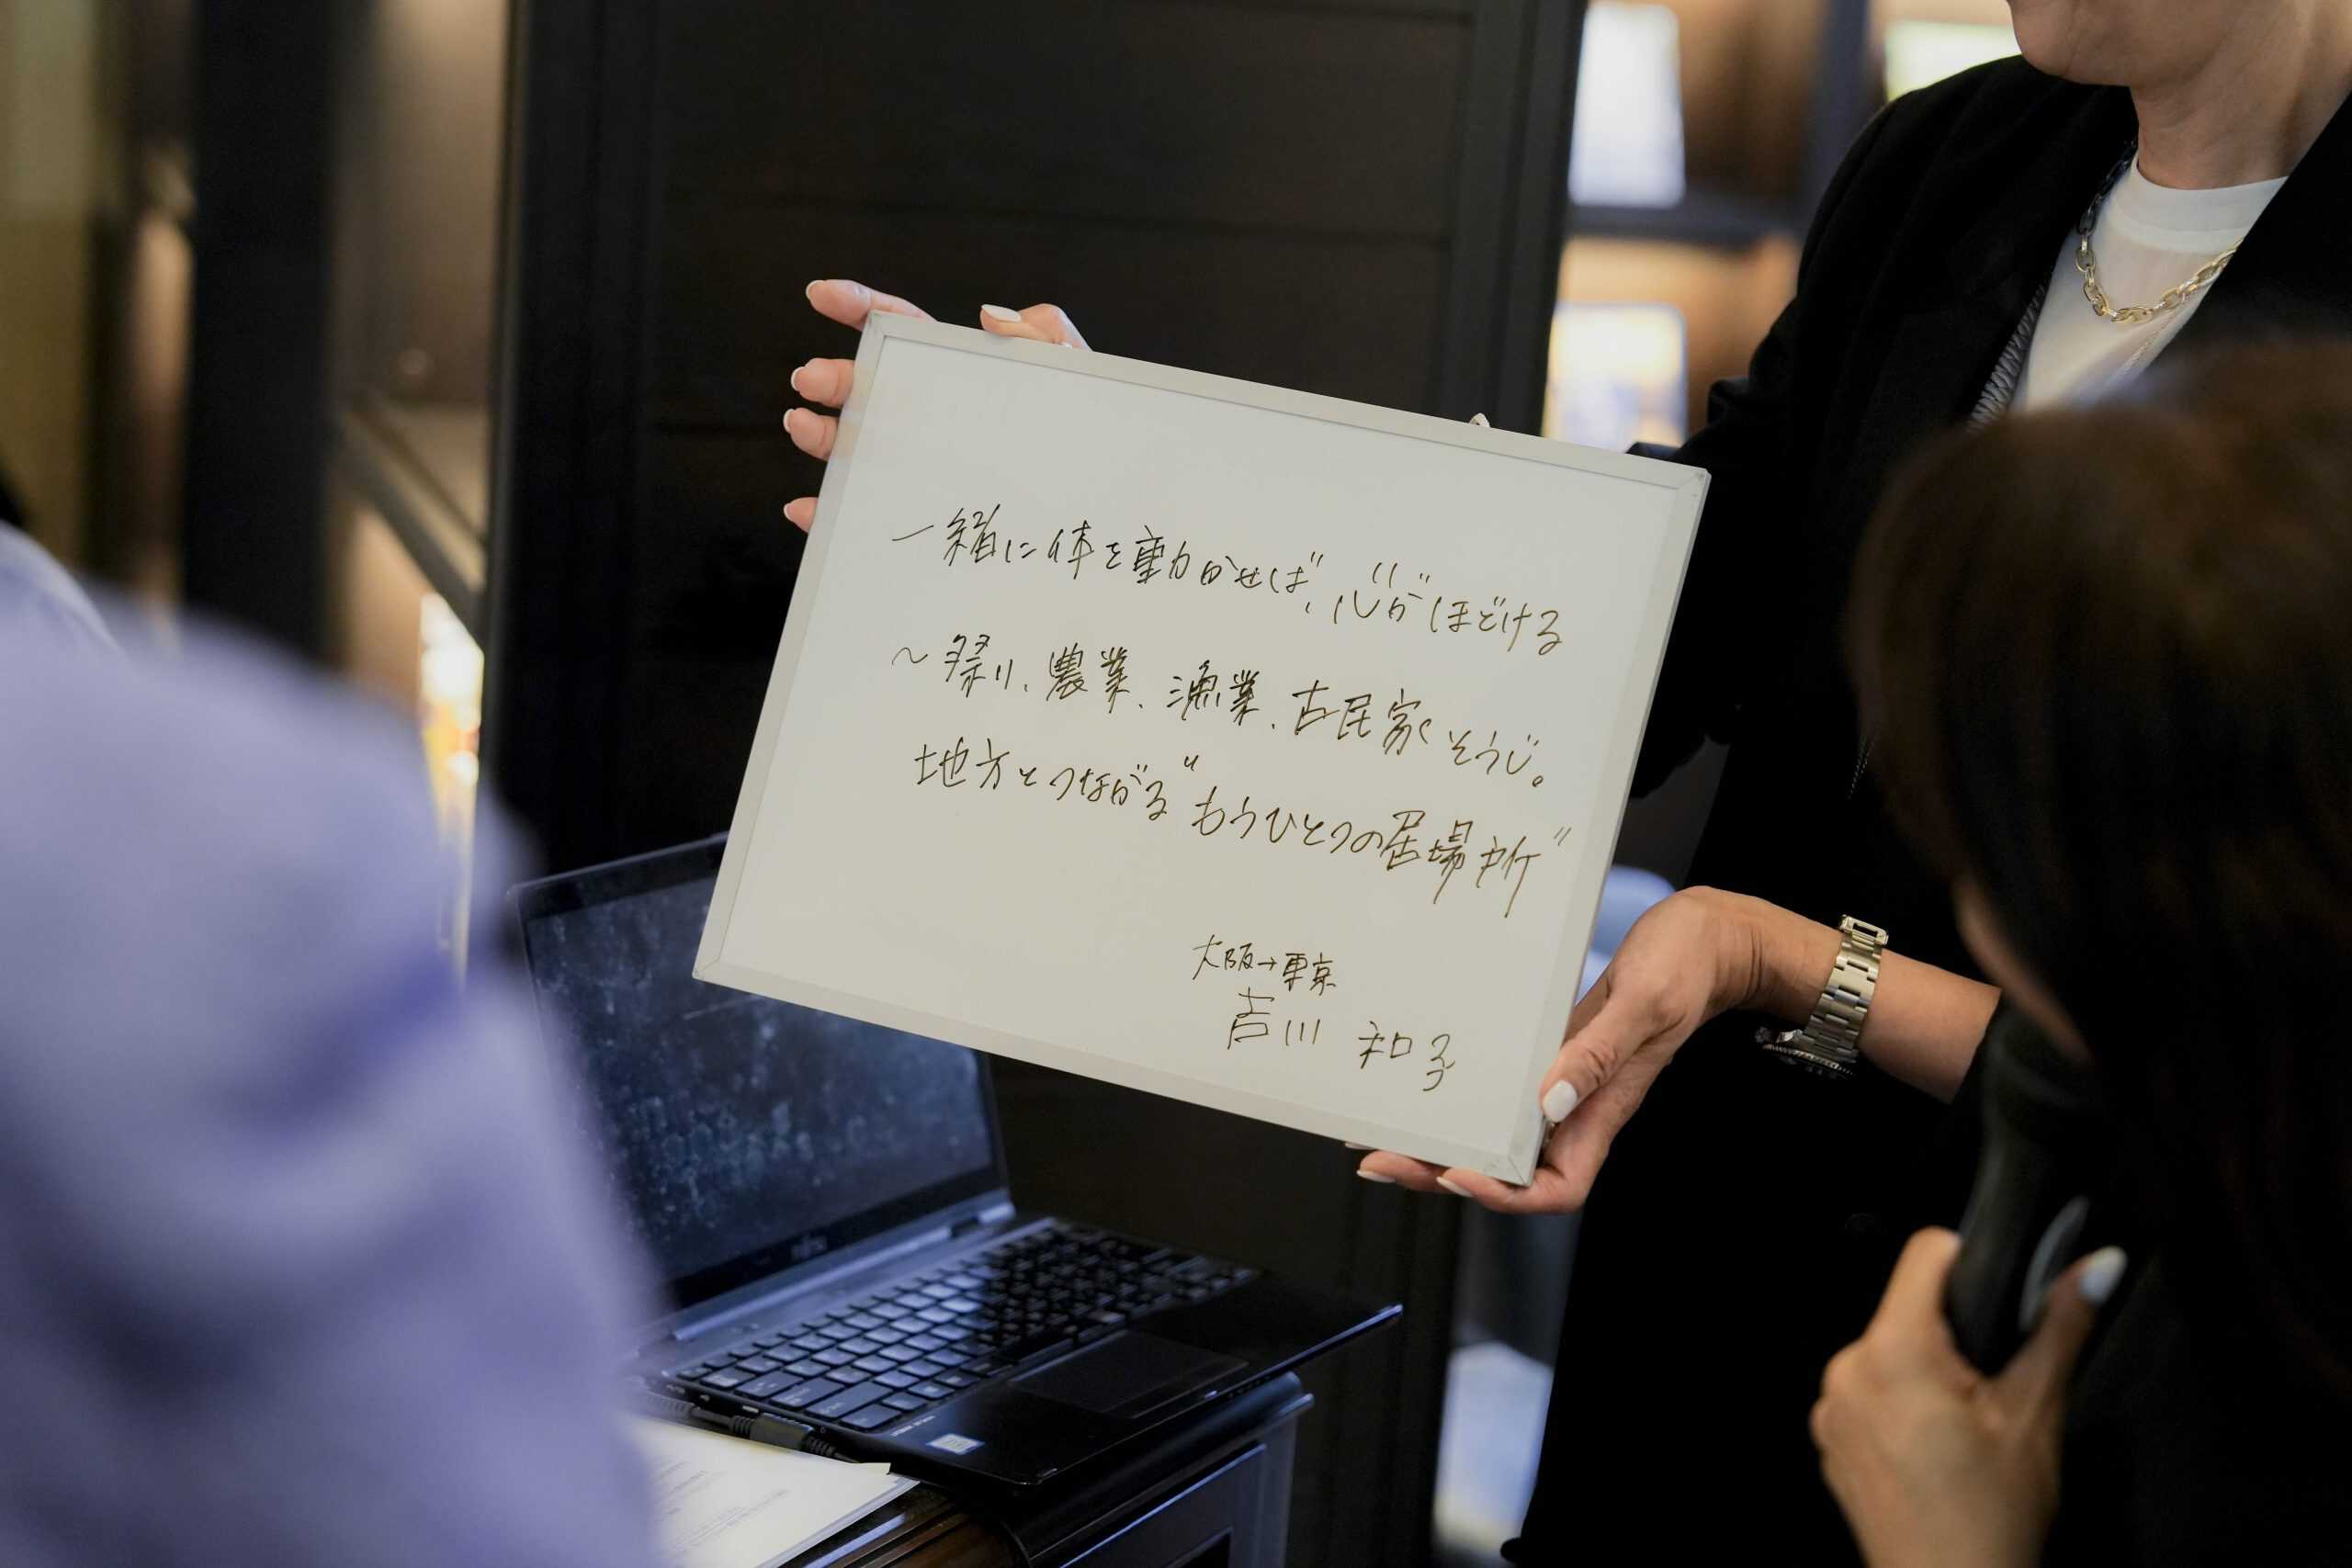 一緒に体を動かせば、心がほどける
〜祭り、農業、漁業、古民家そうじ。
地方とつながる"もうひとつの居場所"
大阪→東京
吉川 和子
FUJITSU